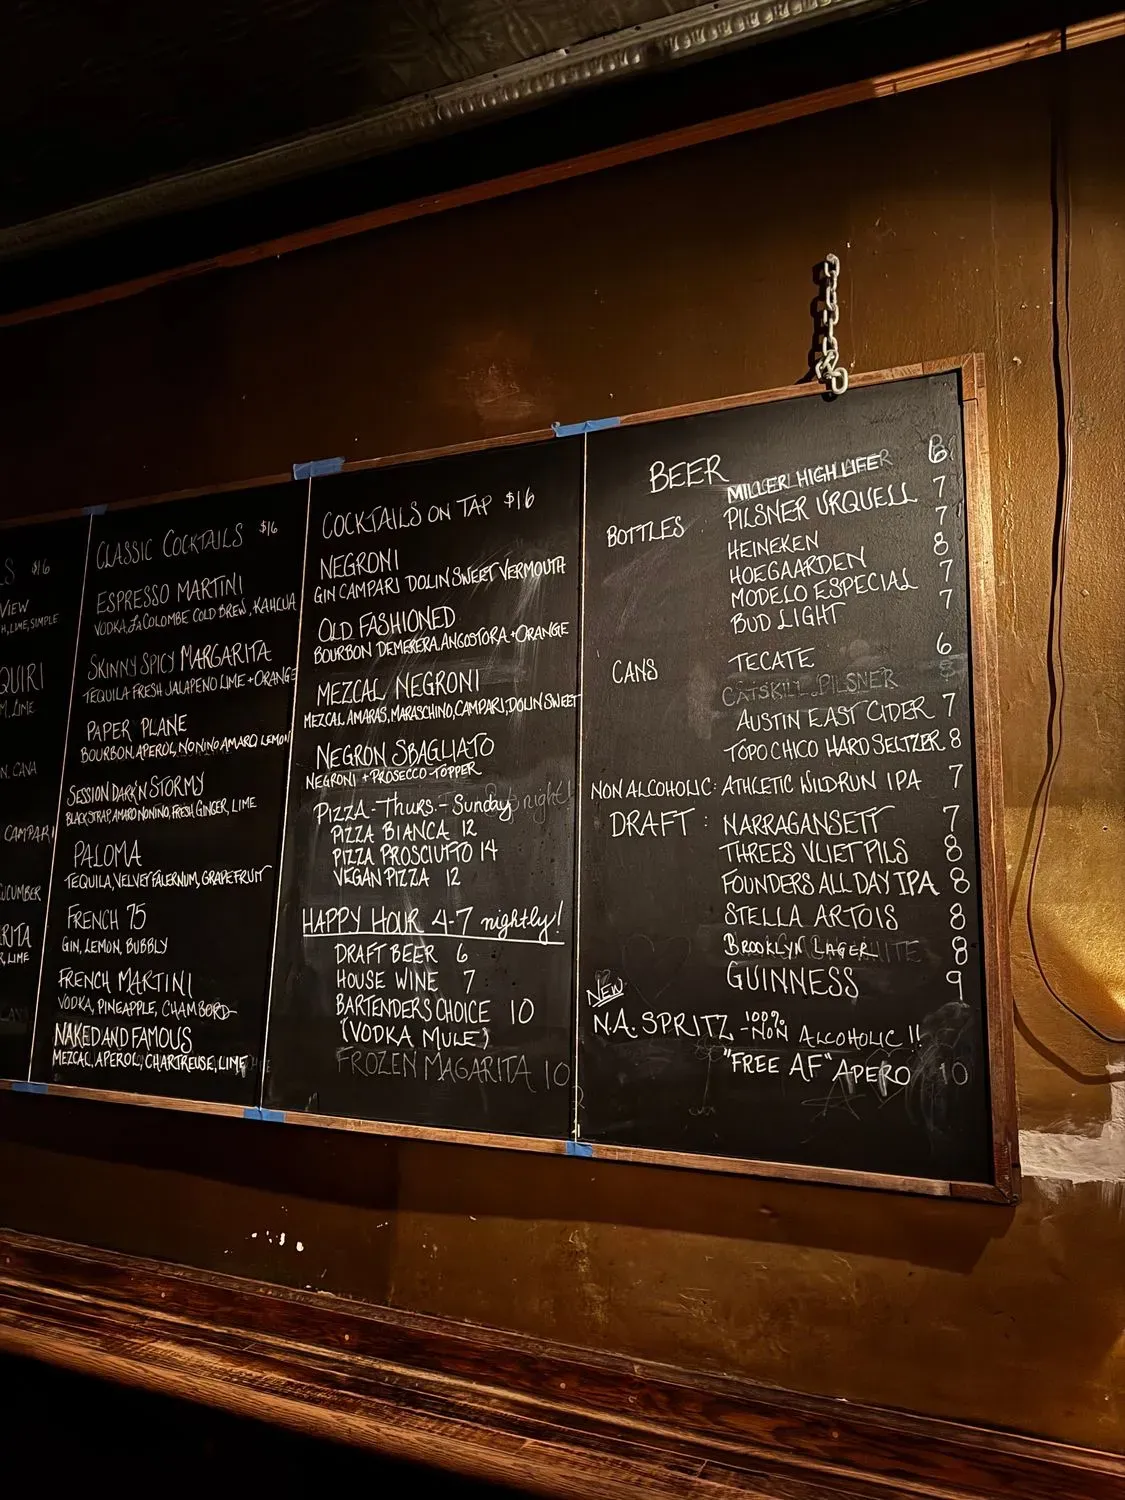 S $16
VIEW
H, LIME, SIMPLE
QUIRI
M, LIME
N, CAVA
CAMPARI
CUCUMBER
RITA
R, LIME
CLASSIC COCKTAILS $16
ESPRESSO MARTINI
VODKA, LA COLOMBE COLD BREW, KAHLUA
SKINNY SPICY MARGARITA
TEQUILA FRESH JALAPENO LIME + ORANGE
PAPER PLANE
BOURBON, APEROL, NONINO AMARO, LEMON
SESSION DARK'N STORMY
BLACK STRAP, AMARO NONINO, FRESH GINGER, LIME
PALOMA
TEQUILA, VELVET FALERNUM, GRAPEFRUIT
FRENCH 75
GIN, LEMON, BUBBLY
FRENCH MARTINI
VODKA, PINEAPPLE, CHAMBORD
NAKED AND FAMOUS
MEZCAL, APEROL, CHARTREUSE, LIME
COCKTAILS ON TAP $16
NEGRONI
GIN CAMPARI DOLIN SWEET VERMOUTH
OLD FASHIONED
BOURBON DEMERERA, ANGOSTORA + ORANGE
MEZCAL NEGRONI
MEZCAL AMARAS, MARASCHINO, CAMPARI, DOLIN SWEET
NEGRON SBAGLIATO
NEGRONI + PROSECCO TOPPER
PIZZA - Thurs. - Sunday
PIZZA BIANCA 12
PIZZA PROSCIUTTO 14
VEGAN PIZZA 12
HAPPY HOUR 4-7 nightly!
DRAFT BEER 6
HOUSE WINE 7
BARTENDERS CHOICE 10
(VODKA MULE)
FROZEN MAGARITA 10
BEER MILLER HIGH LIFE 6
BOTTLES PILSNER URQUELL 7
HEINEKEN 7
HOEGAARDEN 8
MODELO ESPECIAL 7
BUD LIGHT 7
CANS TECATE 6
CATSKILL PILSNER
AUSTIN EAST CIDER 7
TOPO CHICO HARD SELTZER 8
NON ALCOHOLIC: ATHLETIC WILDRUN IPA 7
DRAFT: NARRAGANSETT 7
THREES VLIET PILS 8
FOUNDERS ALL DAY IPA 8
STELLA ARTOIS 8
BROOKLYN LAGER 8
GUINNESS 9
NEW
N.A. SPRITZ 100% - NON ALCOHOLIC !!
"FREE AF" APERO 10